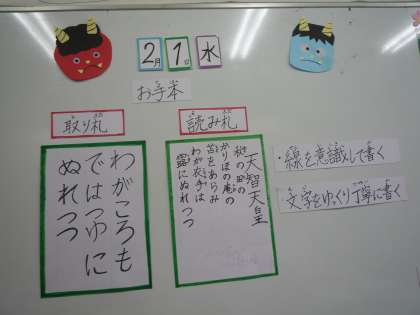 2月
1日
水
お手本
取り札
読み札
わがころも
ではつゆに
ぬれつつ
天智天皇
秋の田の
かりほの庵の
苫をあらみ
わが衣手は
露にぬれつつ
・線を意識して書く
・文字をゆっくり丁寧に書く